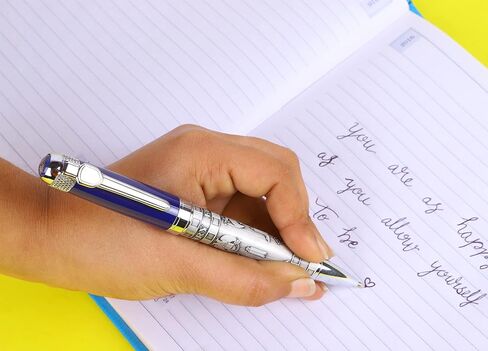 You are as happy
as you allow yourself
To be